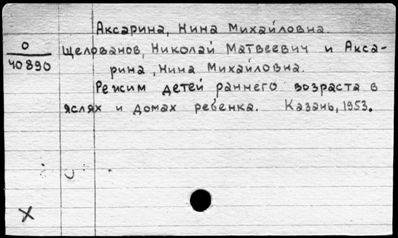 Аксарина, Нина Михайловна.
О
40890
Щелованов, Николай Матвеевич и Акса-
рина, Нина Михайловна.
Режим детей раннего возраста в
яслях и домах ребенка. Казань, 1953.
X